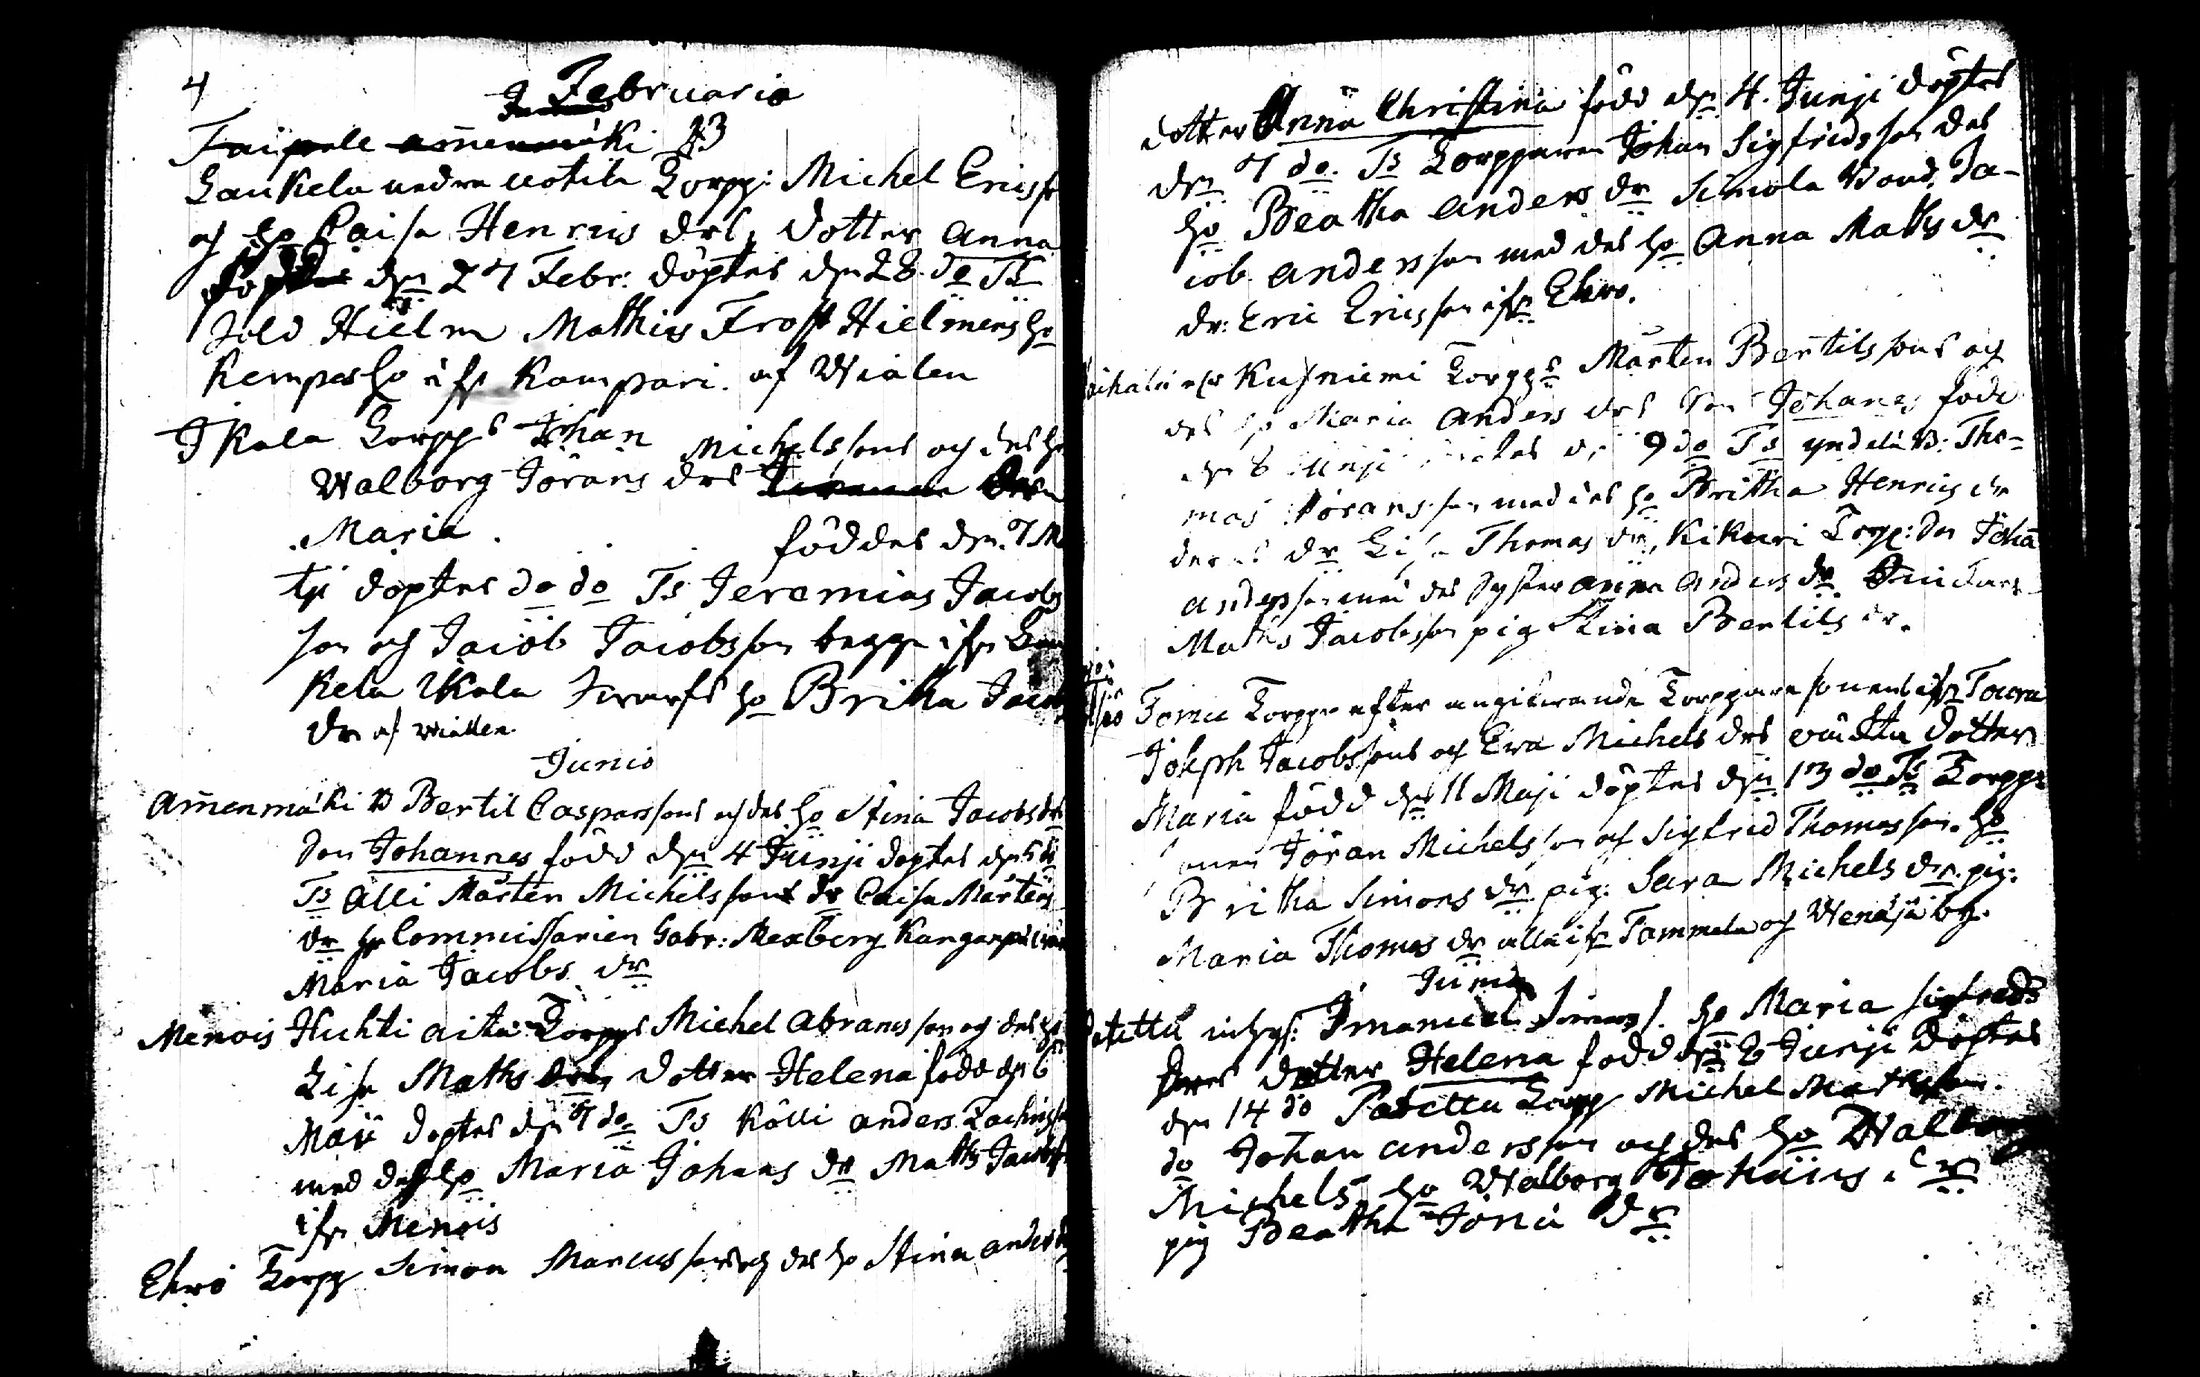 4
I Februario
Taipale amenmäki B
Laukela nedre uotila Torpp: Michel Ericss
och ho Caisa Henrics drs, dotter Anna
den 27 Febr: döptes den 28 do Ts
Sold Hielm Mathias Frost Hielmens ho
Kempes ho ifr Kampari. af Wialen
Ikala Torpps Johan Michelssons och des ho
Walborg Jörans drs
Maria föddes den 7 M
tji döptes do do Ts Jeremias Jacobs
son och Jacob Jacobsson begge ifrn Lau
kela Ikala ho Britha Jacob
dr af Wialen
Junio
Amenmäki B Bertil Casparssons och des ho Stina Jacobs drs
Son Johannes född den 4 Junji döptes den 5 do
Ts Alli Mårten Michelssons dr Caisa Mårtens
dr hr Commissarien Gabr: Mexberg
Maria Jacobs dr
Menois Huhti aita Torpps Michel Abramsson och des ho
Lisa Maths drs dotter Helena född den 6
Maji döptes den 7 do Ts Kölli Anders Zachriss
med des ho Maria Johans dr Maths Jacobs
ifr Menois
Ehro Torpp Simon Marcussons och des ho Stina Anders
dotter Anna Christina född den 4. Junji döptes
den 7 do. Ts Torpparen Johan Sigfridsson des
ho Beatha Anders dr Simola Bond. Ja-
cob Andersson med des ho Anna Maths dr
dr: Eric Ericsson ifrn Ehro.
Kusniemi Torpps Mårten Bertilssons och
des ho Maria Anders drs Son Johanes född
den 8 Junji döptes d. 9 do Ts B: Tho-
mas Jöransson med des ho Britha Henrics dr
deras dr Lisa Thomas dr, Kikuri Torp: Son Joha
Andersson med des Syster Anna Anders dr
Maths Jacobsson pig Stina Bertils dr.
Torpp efter Torppare sonens ifrn Toura
Joseph Jacobssons och Eva Michels drs dotter
Maria född den 11 Maji döptes den 13 do Ts Torppe
Jöran Michelsson och Sigfrid Thomasson. ho
Britha Simons dr. pig: Sara Michels dr. pig:
Maria Thomas dr alla ifr Tammela och Wenäjä by.
Junio
inhys: Imanuel ho Maria Sigfreds
dotter Helena född den 6 Junji döptes
den 14 do Patettu Torpp Michel Mathsson.
do Johan Andersson och des ho Walborg
Michels ho Walborg Johans dr
pig Beatha Jöns dr